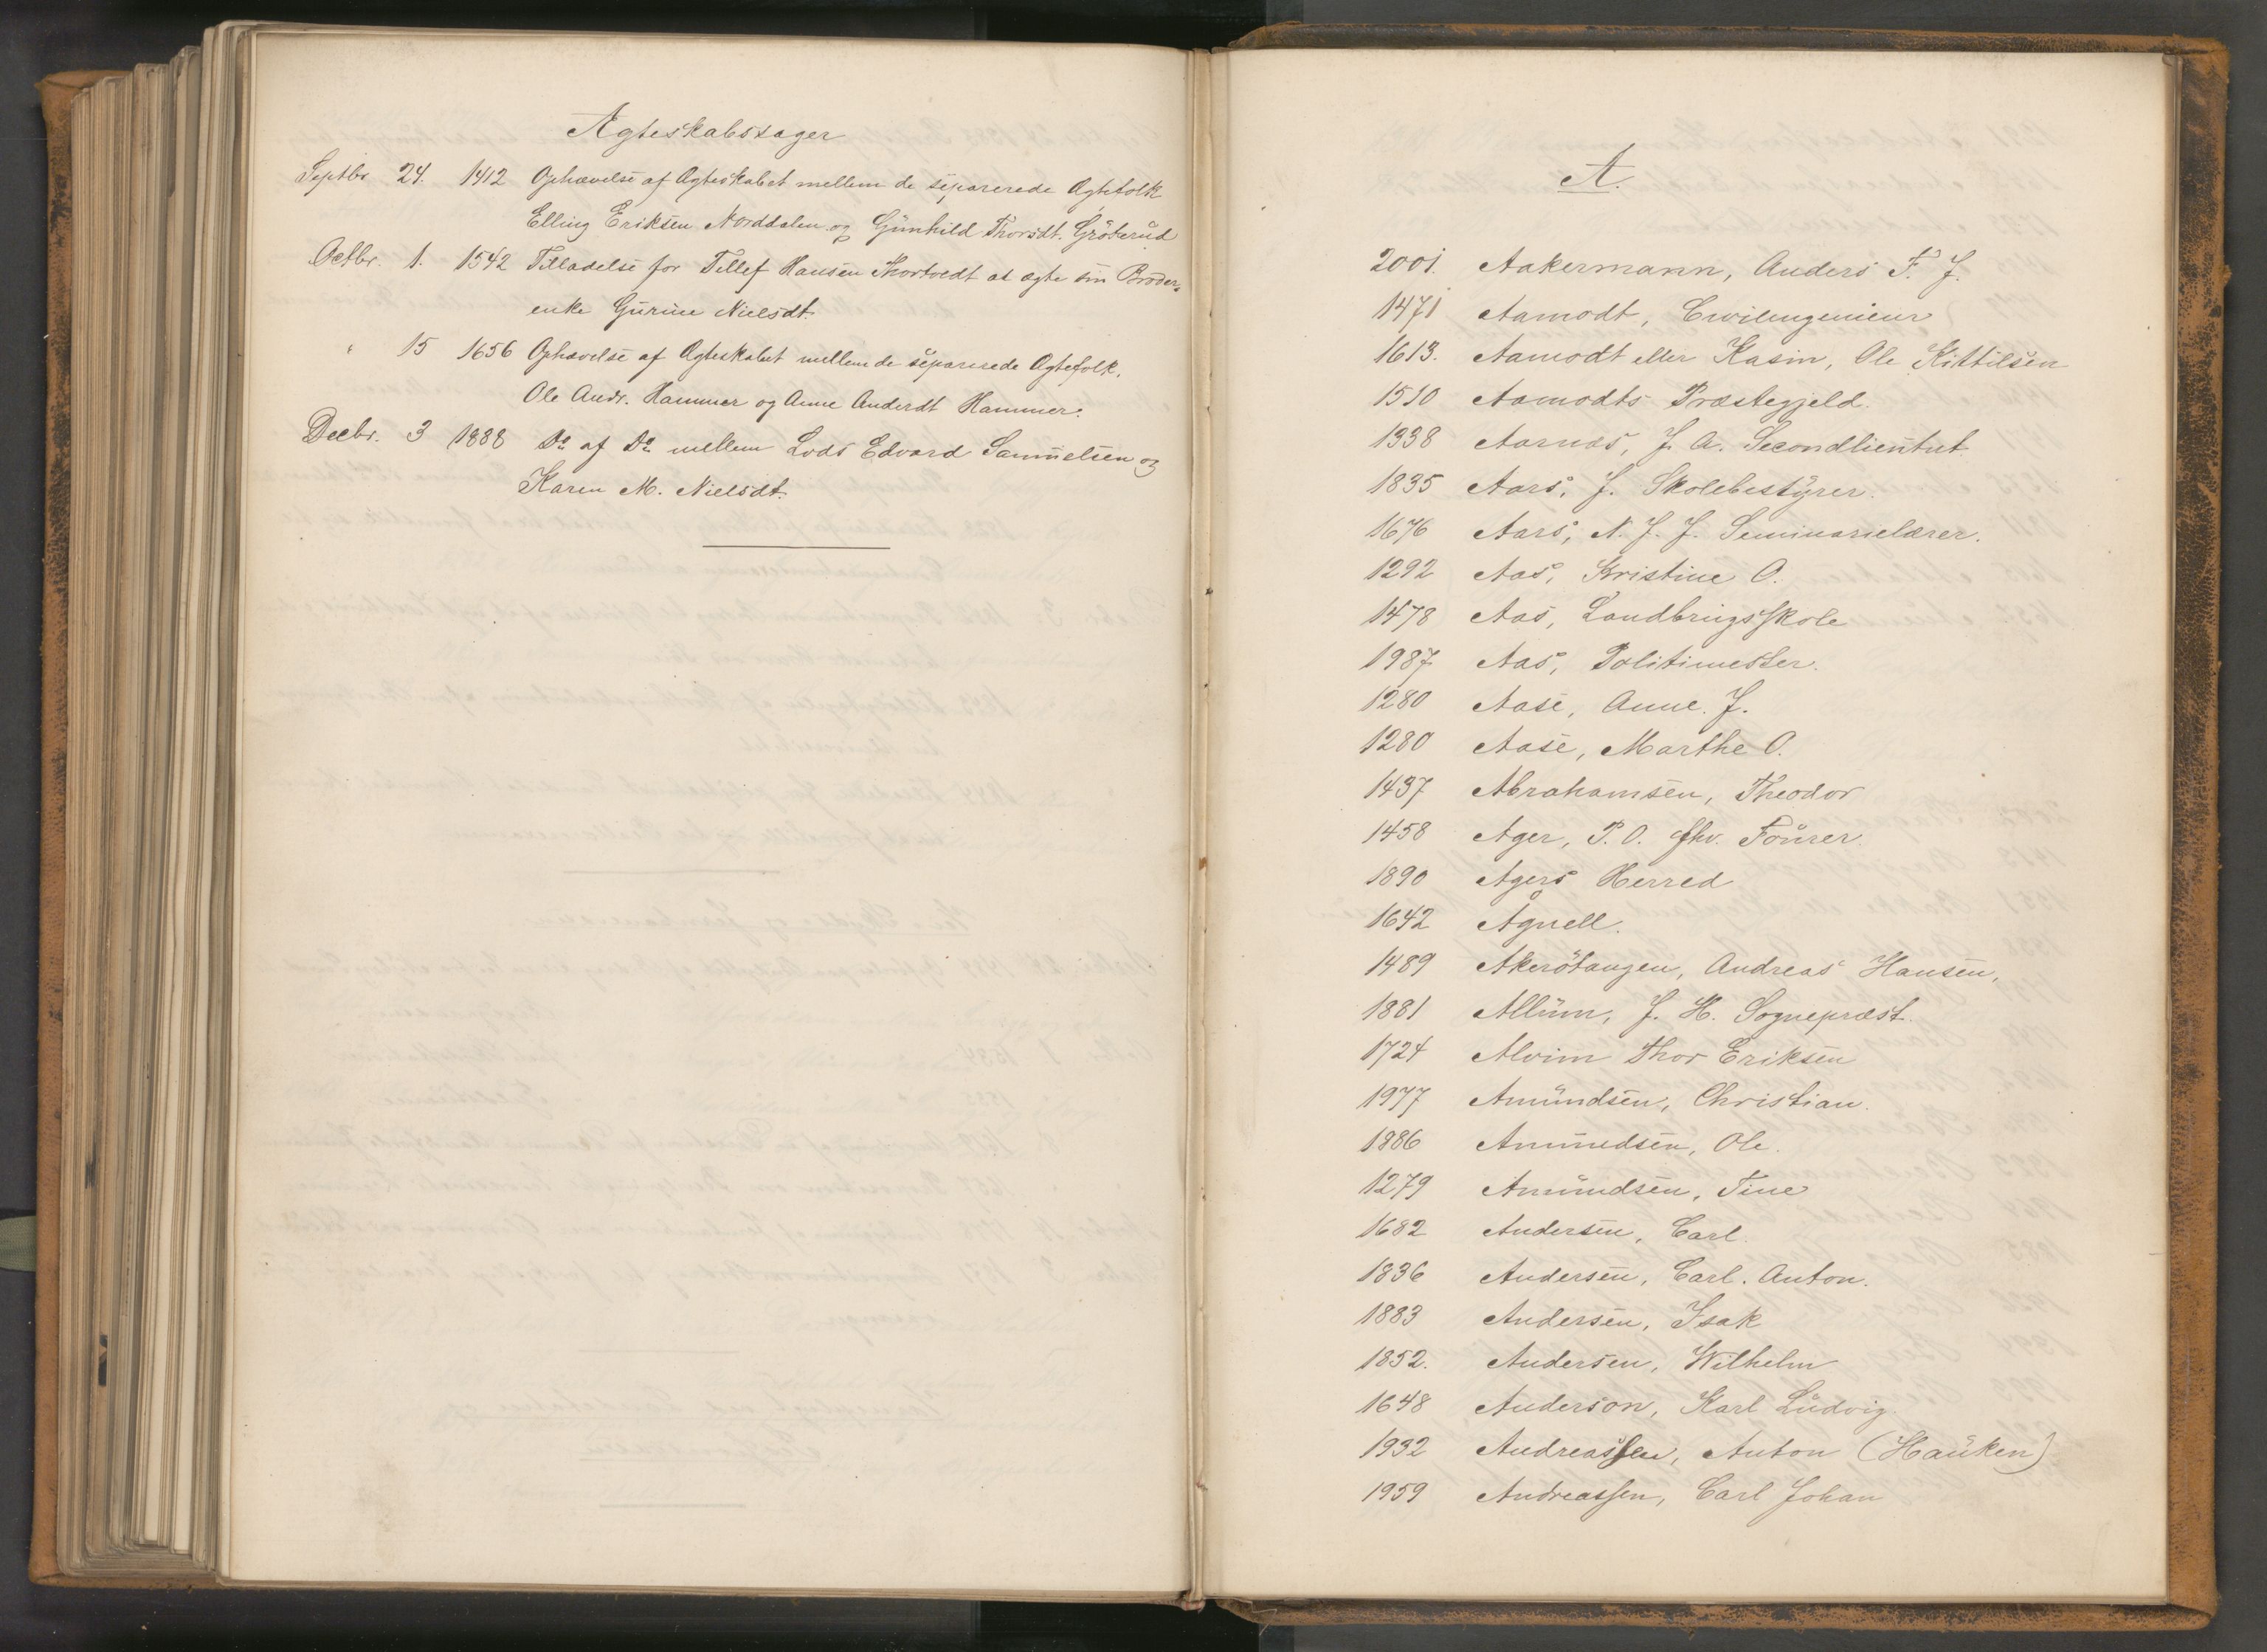 Ægteskabssager
Septbr 24. 1412 Ophævelse af Ægteskabet mellem de separerede Ægtefolk
Elling Eriksen Norddalen og Gunhild Thorsdt. Gröterud
Octbr. 1. 1542 Tilladelse for Tellef Hansen Thortvedt at ægte sin Broder-
enke Gurine Nielsdt.
" 15 1656 Ophævelse af Ægteskabet mellem de separerede Ægtefolk.
Ole Andr. Hammer og Anne Andersdt Hammer.
Decbr. 3 1888 Do af Do mellem Lods Edvard Samuelsen og
Karen M. Nielsdt.
A.
2001. Aakermann, Anders F. J.
1471 Aamodt, Civilingenieur
1613. Aamodt eller Kasin, Ole Kittilsen
1510 Aamodts Præstegjeld.
1338 Aarnæs, J. A. Secondlieutnt.
1835 Aars, J. Skolebestyrer.
1676 Aars, N. J. J. Seminarielærer.
1292 Aas, Kristine O.
1478 Aas, Landbrugsskole
1987 Aas, Politimester.
1280 Aase, Anne. J.
1280 Aase, Marthe O.
1437 Abrahamsen, Theodor
1458 Ager, P. O. fhv. Fourer.
1890 Agers Herred
1642 Agnell.
1489 Akerötangen, Andreas Hansen,
1881 Allum, J. H. Sognepræst.
1724 Alvim Thor Eriksen
1977 Amundsen, Christian.
1886 Amundsen, Ole.
1279 Amundsen, Tine
1682 Andersen, Carl.
1836 Andersen, Carl. Anton.
1883 Andersen, Isak
1852. Andersen, Wilhelm
1648 Anderson, Karl Ludvig.
1932 Andreassen, Anton (Hauken)
1959 Andreassen, Carl Johan